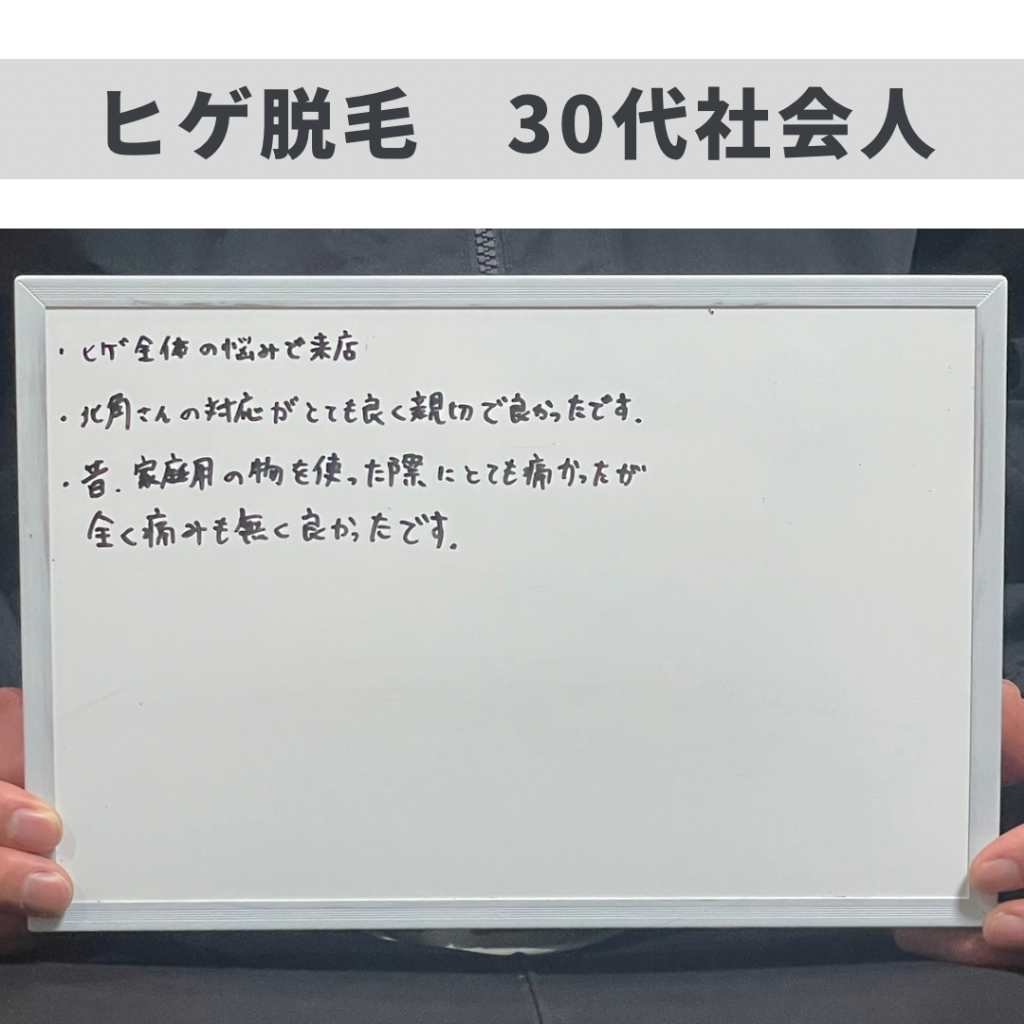 ヒゲ脱毛　30代社会人
・ヒゲ全体の悩みで来店
・北角さんの対応がとても良く親切で良かったです。
・昔、家庭用の物を使った際にとても痛かったが
全く痛みも無く良かったです。